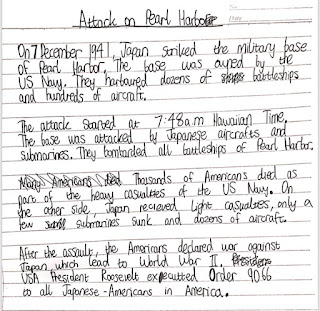 Attack on Pearl Harbor
On 7 December 1941, Japan striked the military base
of Pearl Harbor. The base was owned by the
US Navy. They harboured dozens of battleships
and hundreds of aircraft.
The attack started at 7:48am Hawaiian Time.
The base was attacked by Japanese aircrafts and
submarines. They bombarded all battleships of Pearl Harbor.
Many Americans died Thousands of Americans died as
part of the heavy casualties of the US Navy. On
the other side, Japan recieved light casualties, only a
few submarines sunk and dozens of aircraft.
After the assault, the Americans declared war against
Japan which lead to World War II. Presiden
USA President Roosevelt excecutted Order 9066
to all Japanese-Americans in America.